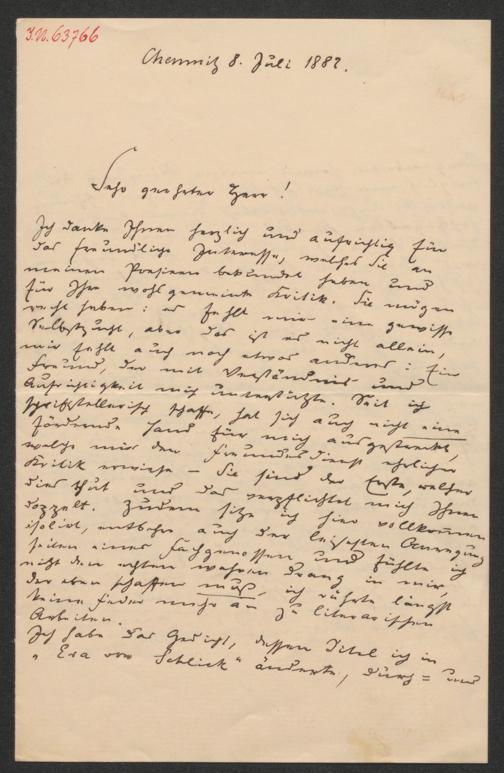 J.N. 63766
Chemnitz 8. Juli 1882.
Sehr geehrter Herr!
Ich danke Ihnen herzlich und aufrichtig für
das freundliche Interesse, welches Sie an
meinen Poesieen bekundet haben und
für Ihre wohlgemeinte Kritik. Sie mögen
recht haben: es fehlt mir eine gewisse
Selbstzucht, aber das ist es nicht allein,
mir fehlt auch noch etwas anderes: Ein
Freund, der mit Verständnis und
Aufrichtigkeit mich unterstützte. Seit ich
schriftstellerisch schaffe, hat sich auch nicht eine
fördernde Hand für mich ausgestreckt,
welche mir den Freundesdienst ehrlicher
Kritik erwiese – Sie sind der Erste, welcher
dies thut und das verpflichtet mich Ihnen
doppelt. Zudem sitze ich hier vollkommen
isolirt, entbehre auch der leisesten Anregung
seitens eines Fachgenossen und fühlte ich
nicht den echten wahren Drang in mir,
der eben schaffen muß, ich rührte längst
keine Feder mehr an zu literarischen
Arbeiten.
Ich habe das Gedicht, dessen Titel ich in
"Eva von Schlick" änderte, durch= und